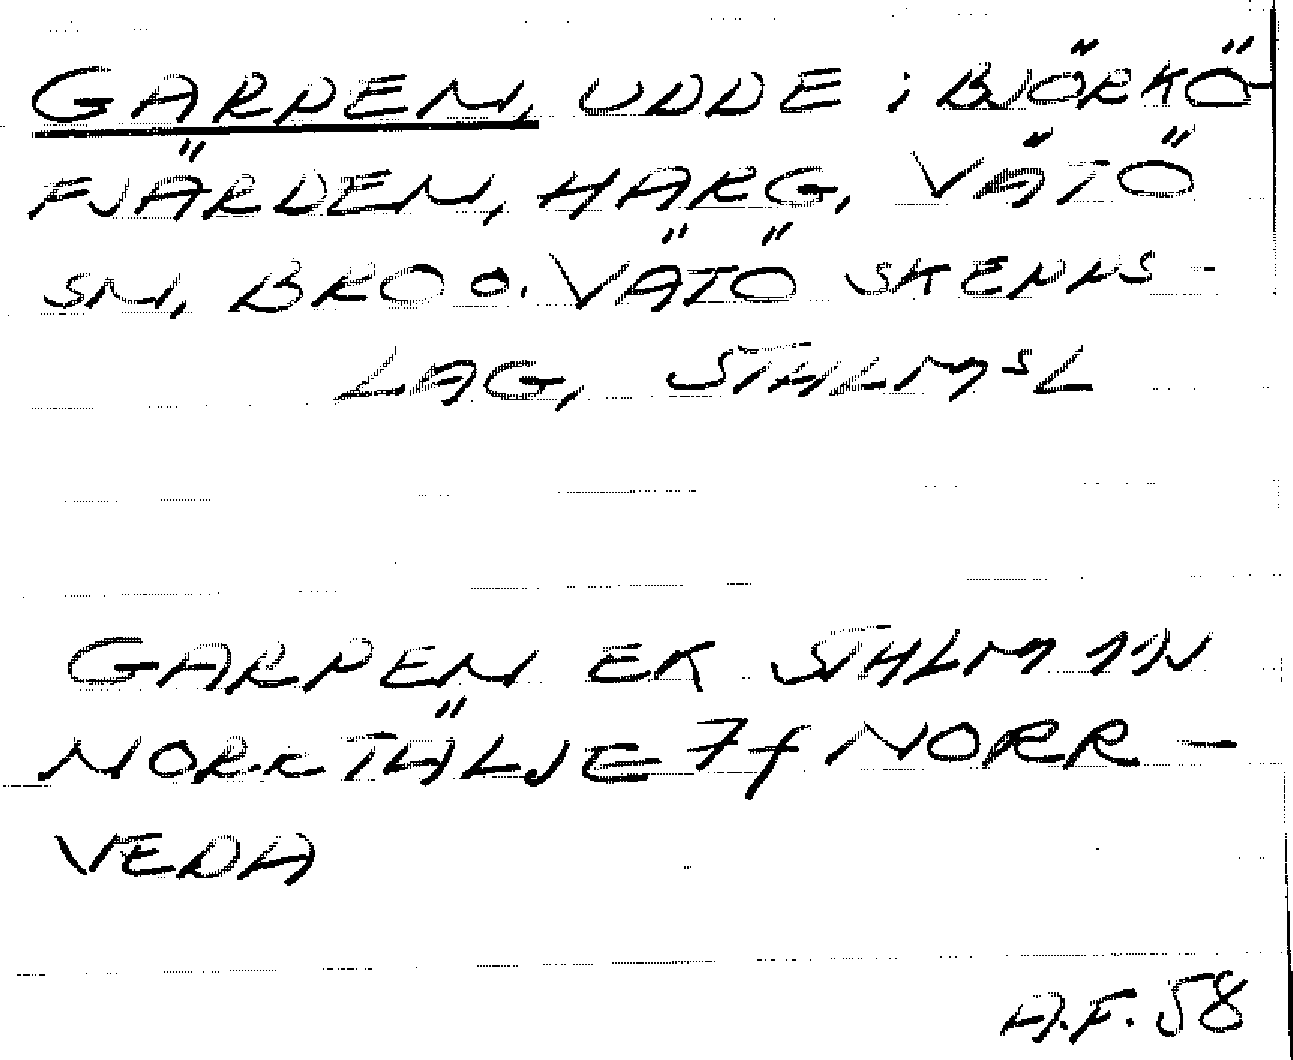 GARPEN, UDDE i BJÖRKÖ-
FJÄRDEN, HARG, VÄTÖ
SN, BRO O. VÄTÖ SKEPPS-
LAG, STHLMSL
GARPEN EK STHLM 11N
NORRTÄLJE 7f NORR-
VEDA
A.F. 58